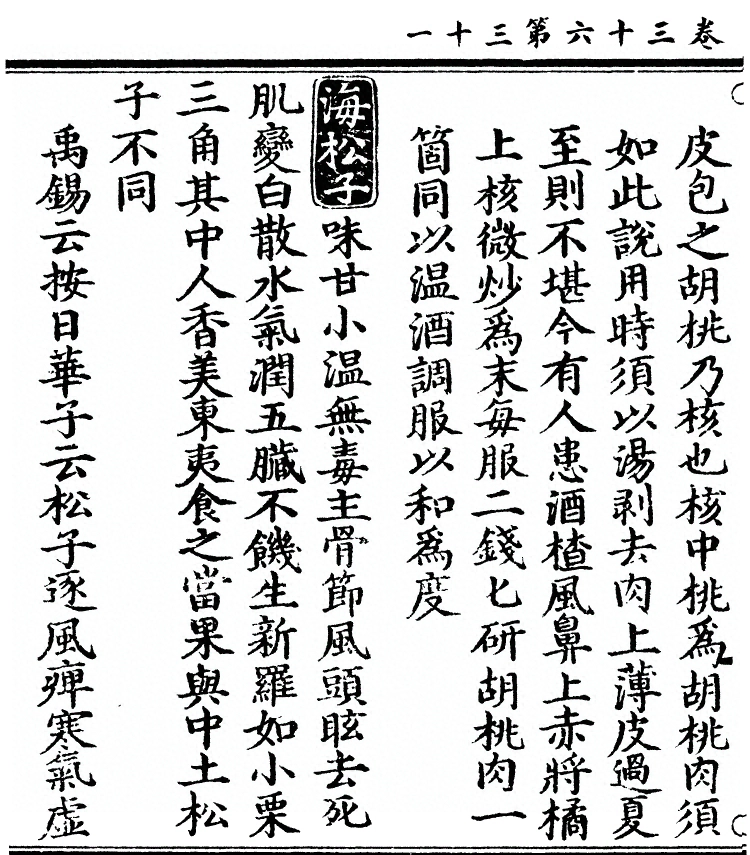 卷三十六第三十一
皮包之胡桃乃核也核中桃為胡桃肉須
如此說用時須以湯剥去肉上薄皮過夏
至則不堪今有人患酒楂風鼻上赤將橘
上核微炒為末每服二錢匕研胡桃肉一
箇同以温酒調服以和為度
海松子味甘小温無毒主骨節風頭眩去死
肌變白散水氣潤五臟不饑生新羅如小栗
三角其中人香美東夷食之當果與中土松
子不同
禹錫云按日華子云松子逐風痺寒氣虛